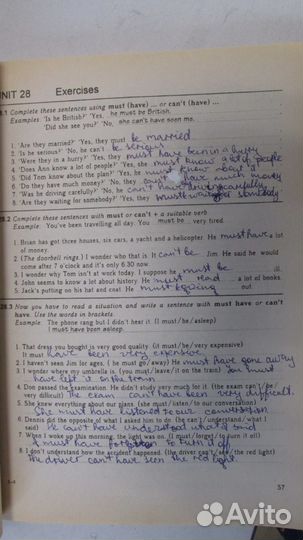 UNIT 28 Exercises
28.1 Complete these sentences using must (have) ... or can't (have) ...
Examples: 'Is he British?' 'Yes, he must be British.'
'Did she see you?' 'No, she can't have seen me.'
1 'Are they married?' 'Yes, they must be married
2 'Is he serious?' 'No, he can't be serious
3 'Were they in a hurry?' 'Yes, they must have been in a hurry
4 'Does Ann know a lot of people?' 'Yes, she must know a lot of people
5 'Did Tom know about the plan?' 'Yes, he must know about it
6 'Do they have much money?' 'No, they can't have much money
7 'Was he driving carefully?' 'No, he can't have driven carefully
8 'Are they waiting for somebody?' 'Yes, they must waiting somebody
28.2 Complete these sentences with must or can't + a suitable verb
Example: You've been travelling all day. You must be very tired.
1 Brian has got three houses, six cars, a yacht and a helicopter. He must have a lot
of money.
2 (The doorbell rings.) I wonder who that is. It can't be Jim. He said he would
come after 7 o'clock and it's only 6.30 now.
3 I wonder why Tom isn't at work today. I suppose he must be ill.
4 John seems to know a lot about history. He must read a lot of books.
5 Jack's putting on his hat and coat. He must be going out
28.3 Now you have to read a situation and write a sentence with must have or can't
have. Use the words in brackets.
Example: The phone rang but I didn't hear it. (I must/be/asleep)
I must have been asleep.
1 That dress you bought is very good quality. (it must/be/very expensive)
It must have been very expensive
2 I haven't seen Jim for ages. (he must/go/away) He must have gone away
3 I wonder where my umbrella is. (you must/leave/it on the train) You must
have left it on the train
4 Don passed the examination. He didn't study very much for it. (the exam can't/be/
very difficult) The exam can't have been very difficult.
5 She knew everything about our plans. (she must/listen/to our conversation)
She must have listened to our conversation
6 Dennis did the opposite of what I asked him to do. (he can't/understand/what I
said) He can't have understood what I said
7 When I woke up this morning, the light was on. (I must/forget/to turn it off)
I must have forgotten to turn it off
8 I don't understand how the accident happened. (the driver can't/see/the red light)
The driver can't have seen the red light.
57
Avito